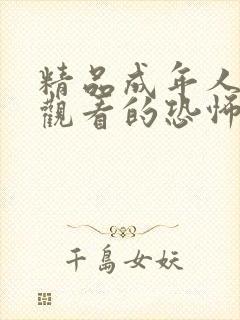 精品成年人
觀看的恐怖
千島女妖